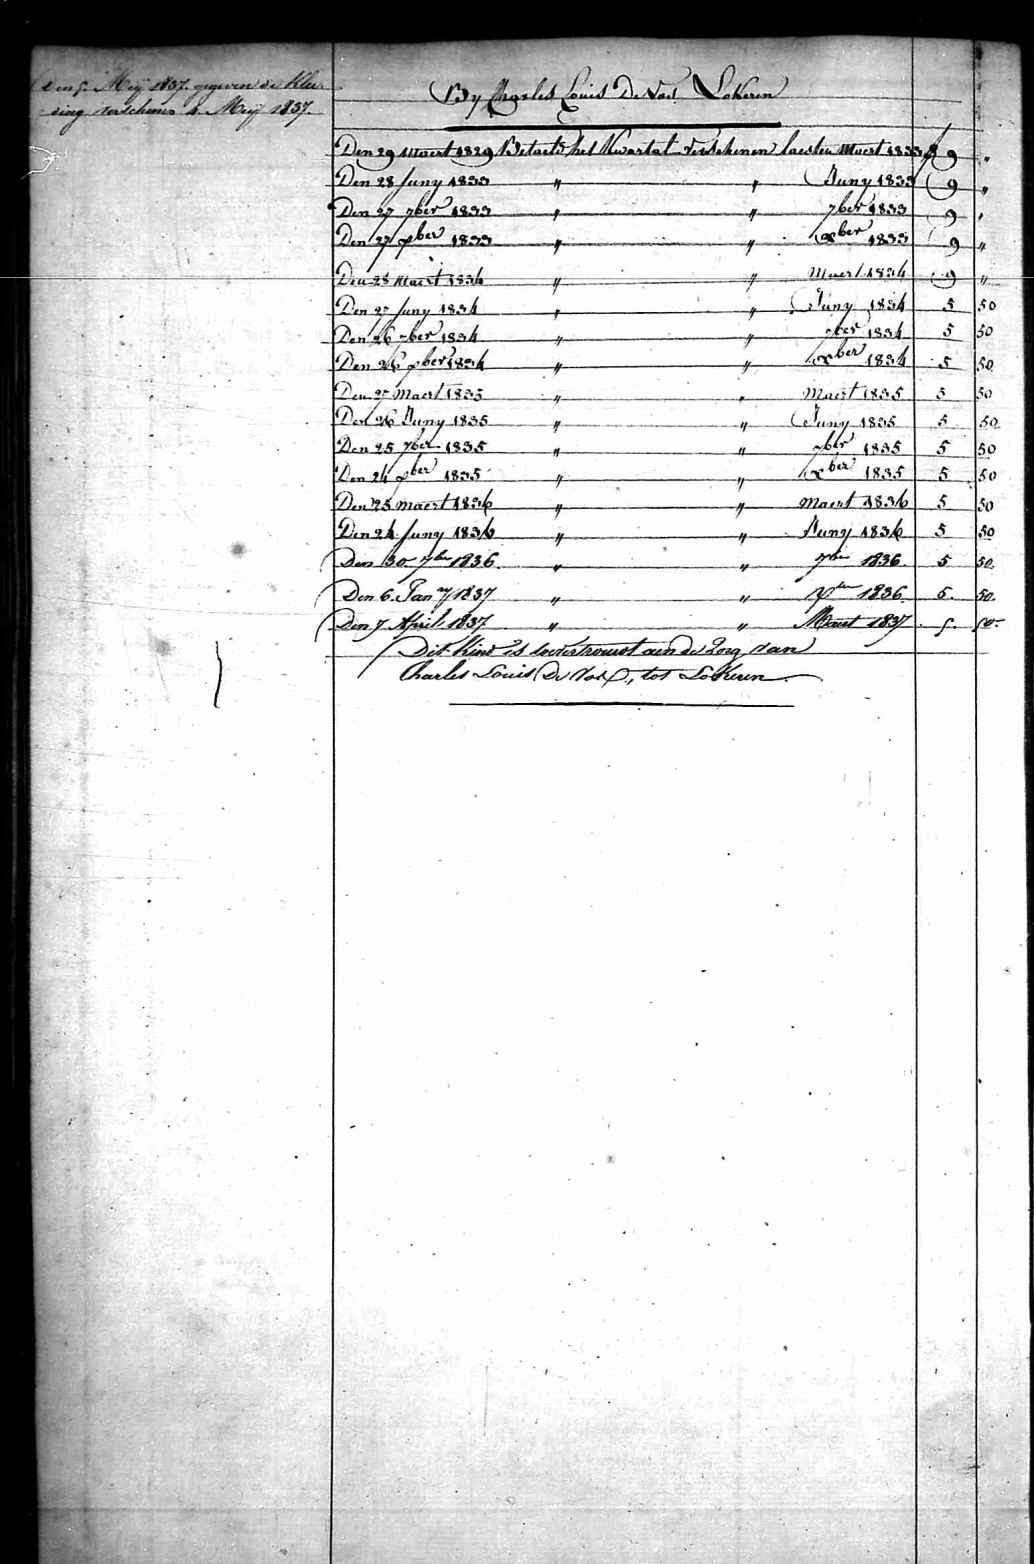 Den 5 Meij 1837. gegeven de Klee-
ding verschenen 4. Meij 1837.
By Charles Louis De Vos Lokeren
Den 29 Maert 1829 Betaeld het Kwartal verschenen laesten Maert 1833 f 9 "
Den 28 Juny 1833 " " Juny 1833 9 "
Den 27 7ber 1833 " " 7ber 1833 9 "
Den 27 xber 1833 " " xber 1833 9 "
Den 28 Maert 1834 " " Maert 1834 9 "
Den 27 Juny 1834 " " Juny 1834 5 50
Den 26 7ber 1834 " " 7ber 1834 5 50
Den 26 xber 1834 " " xber 1834 5 50
Den 27 Maert 1835 " " Maert 1835 5 50
Den 26 Juny 1835 " " Juny 1835 5 50
Den 25 7ber 1835 " " 7ber 1835 5 50
Den 24 xber 1835 " " xber 1835 5 50
Den 25 Maert 1836 " " Maert 1836 5 50
Den 24 Juny 1836 " " Juny 1836 5 50
Den 30 7ber 1836 " " 7ber 1836. 5 50.
Den 6. Jany 1837 " " xber 1836. 5. 50.
Den 7 April 1837 " " Maert 1837 5. 50.
Dit Kind is toevertrouwt aen de Zorg van
Charles Louis De Vos, tot Lokeren